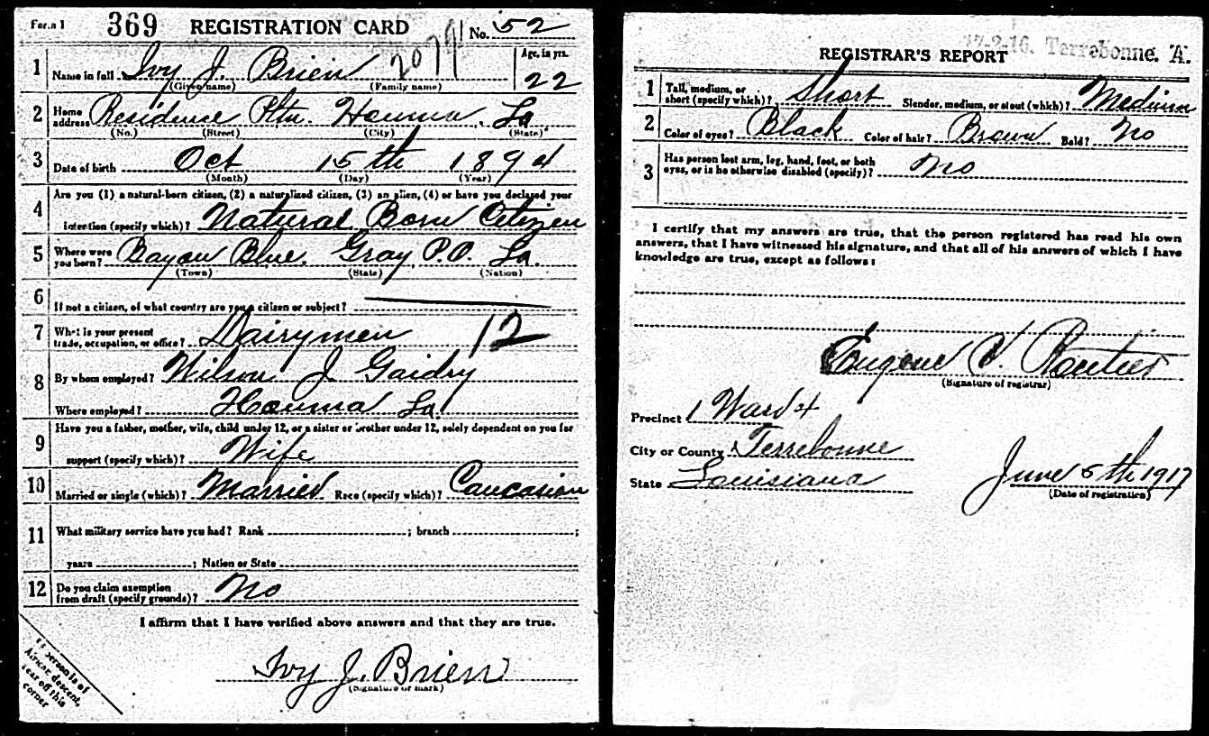 Form 1 369 REGISTRATION CARD No. 52
2079 Age, in yrs.
1 Name in full Ivy J. Brien 22
(Given name) (Family name)
2 Home address Residence Pltn. Houma, La
(No.) (Street) (City) (State)
3 Date of birth Oct 15th 1894
(Month) (Day) (Year)
4 Are you (1) a natural-born citizen, (2) a naturalized citizen, (3) an alien, (4) or have you declared your
intention (specify which)? Natural Born Citizen
5 Where were you born? Bayou Blue. Gray P.O. La.
(Town) (State) (Nation)
6 If not a citizen, of what country are you a citizen or subject?
7 What is your present trade, occupation, or office? Dairymen 12
8 By whom employed? Wilson J. Gaidry
Where employed? Houma La
9 Have you a father, mother, wife, child under 12, or a sister or brother under 12, solely dependent on you for
support (specify which)? Wife
10 Married or single (which)? Married Race (specify which)? Caucasian
11 What military service have you had? Rank ; branch ;
years ; Nation or State
12 Do you claim exemption from draft (specify grounds)? No
I affirm that I have verified above answers and that they are true.
Ivy J. Brien
(Signature or mark)
If person is of
African descent,
tear off this
corner
17-2-16. Terrebonne. A.
REGISTRAR'S REPORT
1 Tall, medium, or short (specify which)? Short Slender, medium, or stout (which)? Medium
2 Color of eyes? Black Color of hair? Brown Bald? No
3 Has person lost arm, leg, hand, foot, or both eyes, or is he otherwise disabled (specify)? No
I certify that my answers are true, that the person registered has read his own
answers, that I have witnessed his signature, and that all of his answers of which I have
knowledge are true, except as follows:
Eugene V.
(Signature of registrar)
Precinct 1 Ward 4
City or County Terrebonne
State Louisiana June 5th 1917
(Date of registration)